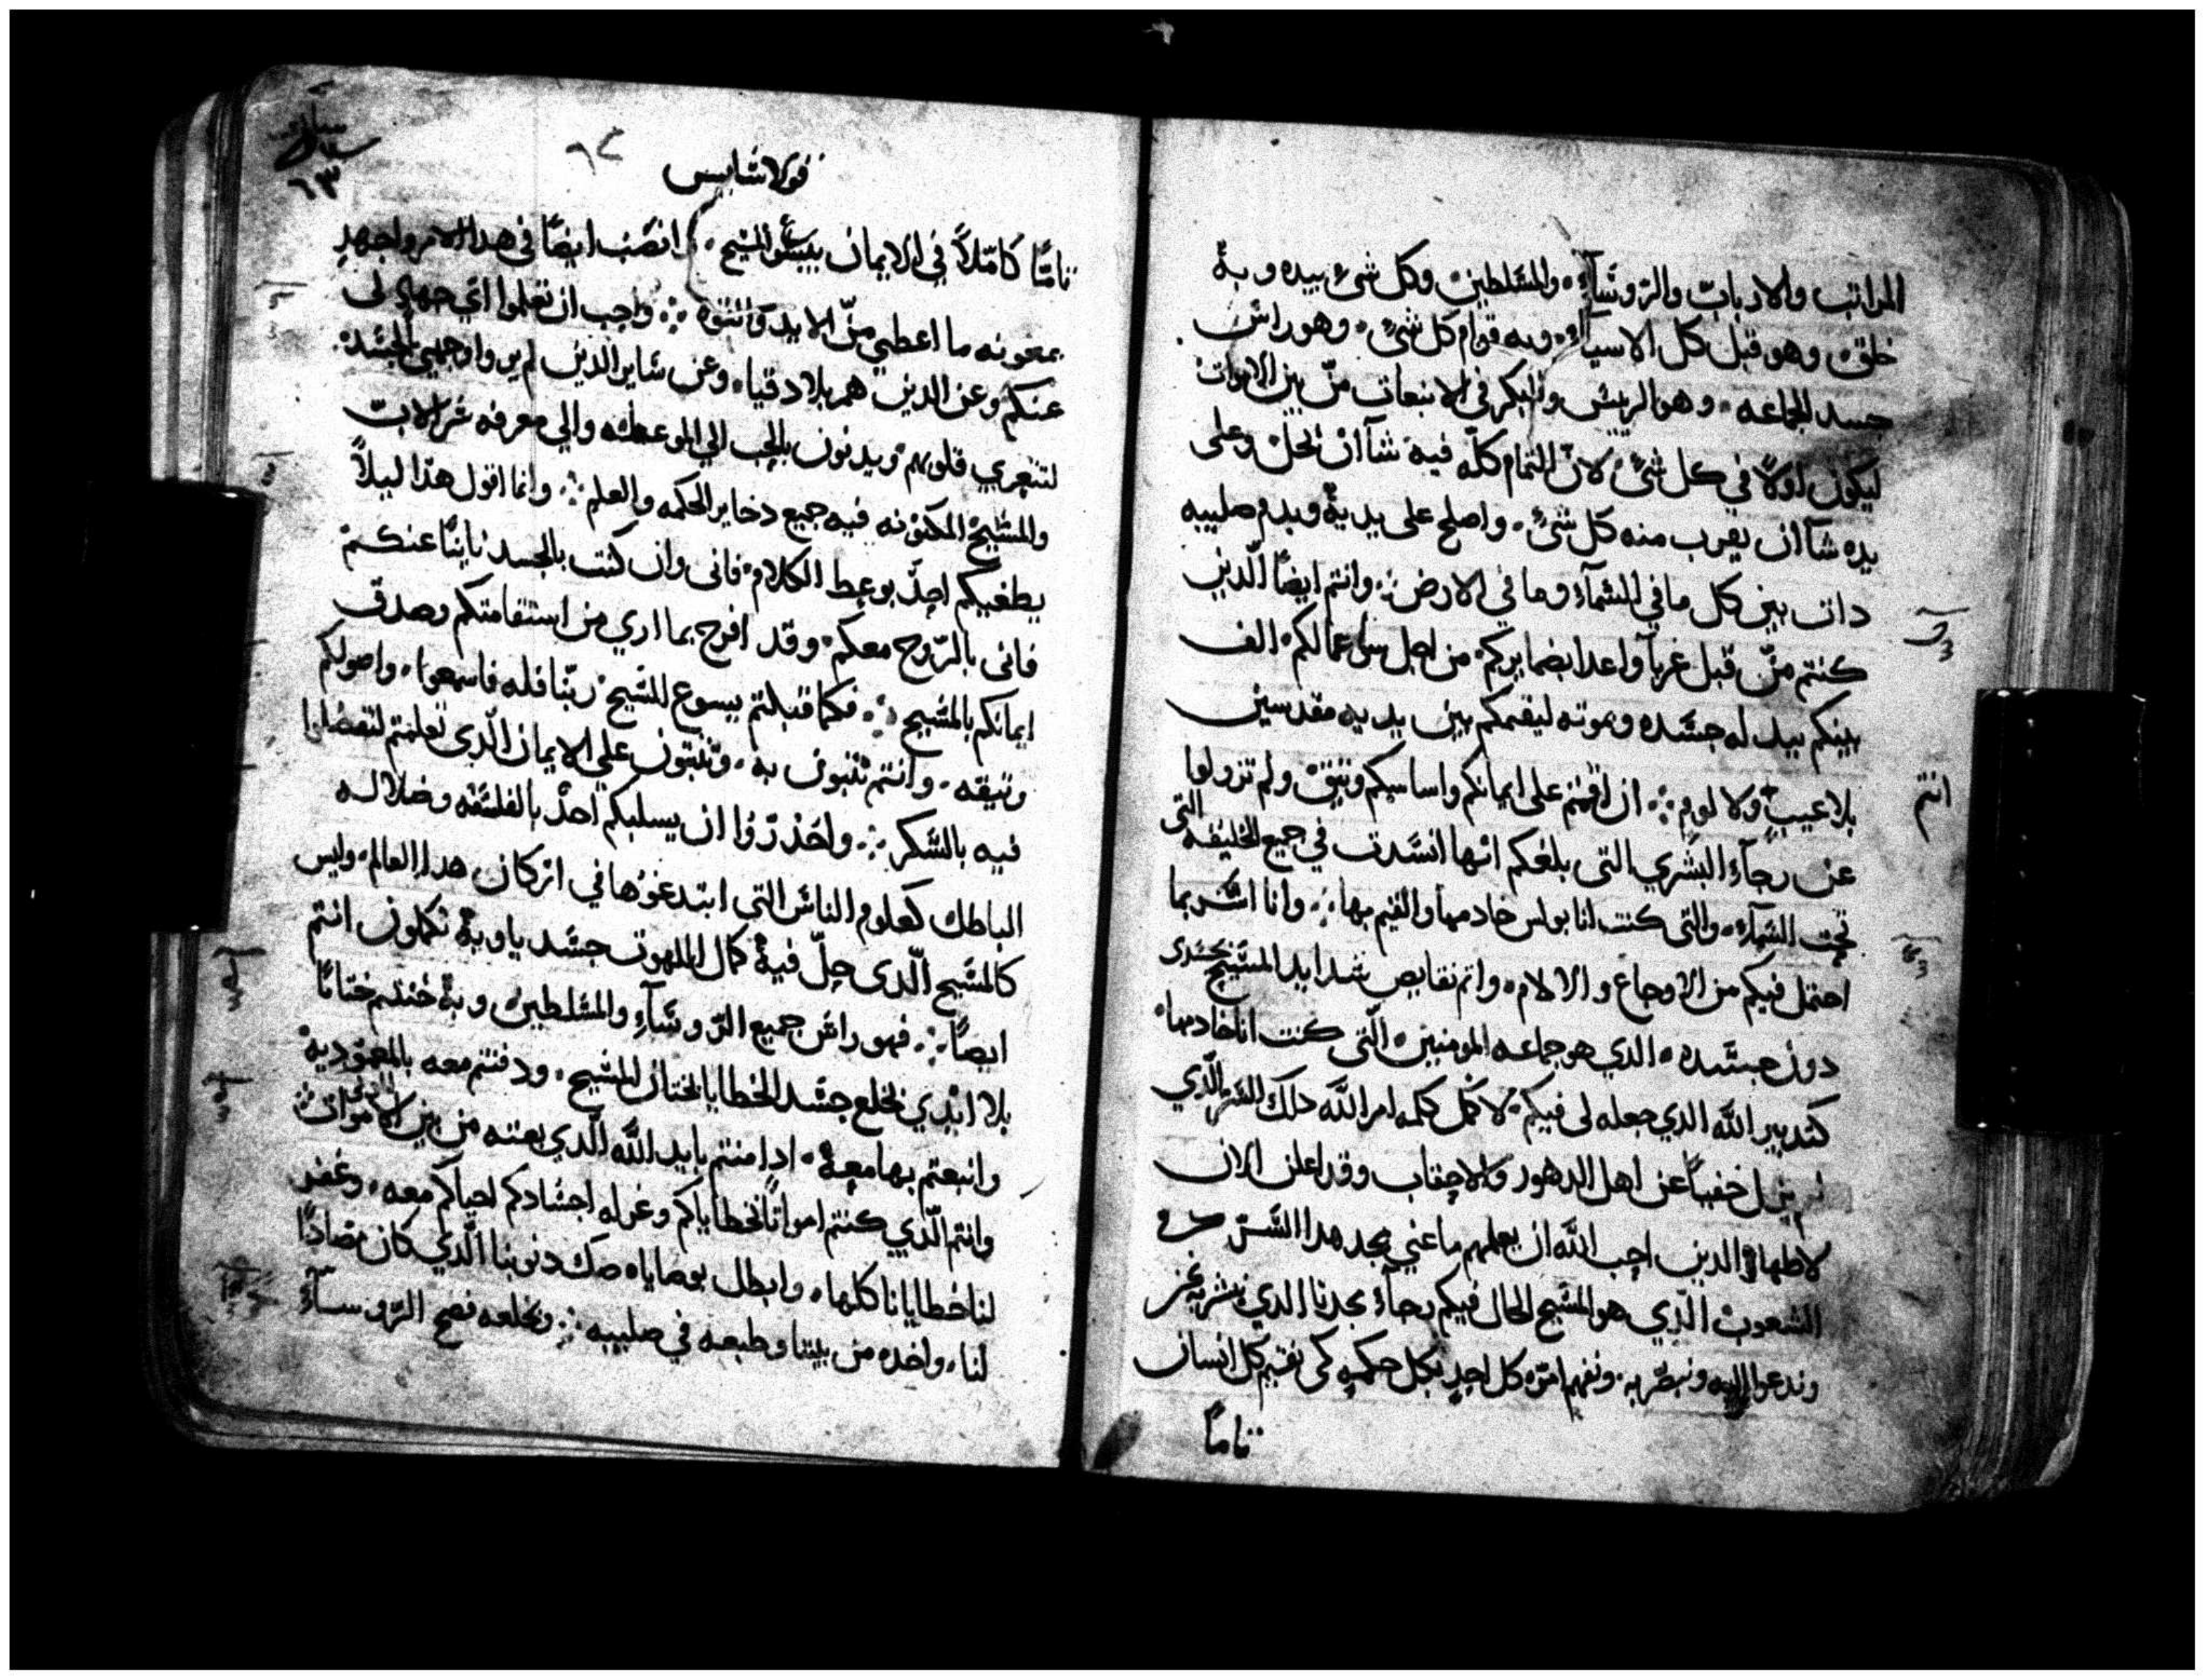 المراتب والارباب والروسآء، والمسلطين وكل شي بيده وبه
خلق، وهو قبل كل الاسيآء، وبه قوام كل شي، وهو راس
جسد الجماعه، وهو الريس والبكر في الانبعاث من بين الاموات
ليكون اولاً في كل شي لان التمام كله فيه شآ ان يحل وعلى
يده شآ ان يقرب منه كل شي، واصلح على يديه وبدم صليبه
دات بين كل ما في السمآء وما في الارض وانتم ايضاً الدين
كنتم من قبل غربآ واعدا بضمايركم من اجل سو اعمالكم، الف
بينكم ببدله جسده وبموته ليقيمكم بين يديه مقدسين
بلا عيب ولا لوم ان اقمتم على ايمانكم واساسكم وتيق ولم تزولوا
عن رجآء البشري التي بلغكم انها انسدت في جميع الخليقه التي
تحت السمآء، والتي كنت انا بولس خادمها والقيم بها وانا اسر بما
احتمل فيكم من الاوجاع والالام، واتم نقايص شدايد المسيح بجسدي
دون جسده، الدي هو جماعه المومنين، التي كنت انا خادمها
كتدبير الله الدي جعله لي فيكم لاكمل كلمه امر الله دلك السر الدي
لم يزل خفياً عن اهل الدهور والاحقاب وقد اعلن الان
لاطهاره الدين احب الله ان يعلمهم ما غني مجد هدا السر في
الشعوب الدي هو المسيح الحال فيكم رجآء مجدنا الدي نبشر به نحن
وندعوا اليه ونبصر به، ونفهم امره كل احد بكل حكمه كي نقيم كل انسان
تاماً
قولاسايس
٦٣
تاما كاملاً في الايمان بيسوع المسيح، وانصب ايضاً في هدا الامر واجهد
بمعونه ما اعطي من الايد والقوه واجب ان تعلموا اي جهاد لي
عنكم وعن الدين هم بلادقيا، وعن ساير الدين لم يروا وجهي بالجسد
لتتعزي قلوبهم ويدنون بالحب الي الموعظه والي معرفه سر الاب
والمسيح المكنونه فيه جميع دخاير الحكمه والعلم وانما اقول هدا ليلاً
يطغيكم احد بوعظ الكلام، فاني وان كنت بالجسد نايياً عنكم
فاني بالروح معكم، وقد افرح بما اري من استقامتكم وصدق
ايمانكم بالمسيح فكما قبلتم يسوع المسيح ربنا فله فاسمعوا، واصولكم
وتيقه، وانتم تبنون به، وتثبتون علي الايمان الدي تعلمتم لتفضلوا
فيه بالشكر واحذروا ان يسلبكم احد بالفلسفه وضلاله
الباطل كعلوم الناس التي ابتدعوها في اركان هدا العالم، وليس
كالمسيح الدي حل فيه كمال اللهوت جسدياً وبه تكملون انتم
ايضاً فهو راس جميع الروسآء والمسلطين، وبه ختنتم ختاناً
بلا ايدي بخلع جسد الخطايا بختان المسيح، ودفنتم معه بالمعوديه
وانبعتم بها معه، اد امنتم بايد الله الدي بعته من بين الاموات
وانتم الدين كنتم امواتاً بخطاياكم وغرله اجسادكم احياكم معه، وغفر
لنا خطايانا كلها، وابطل بوصاياه صك دنوبنا الدي كان مضاداً
لنا، واخده من بيننا وطبعه في صليبه وبخلعه فضح الروسآء